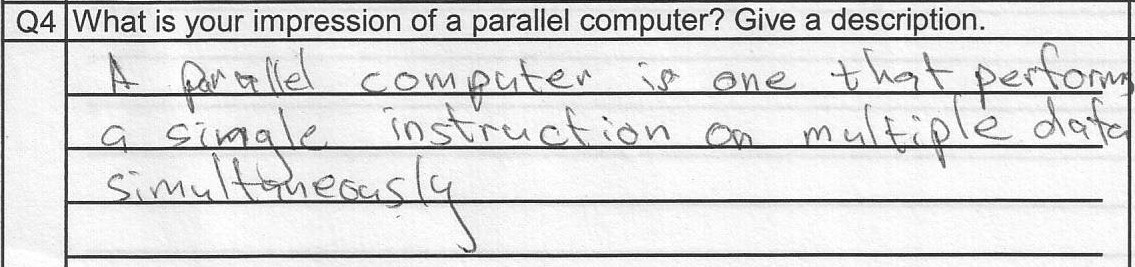 Q4 What is your impression of a parallel computer? Give a description.
A parallel computer is one that performs
a single instruction on multiple data
simultaneously